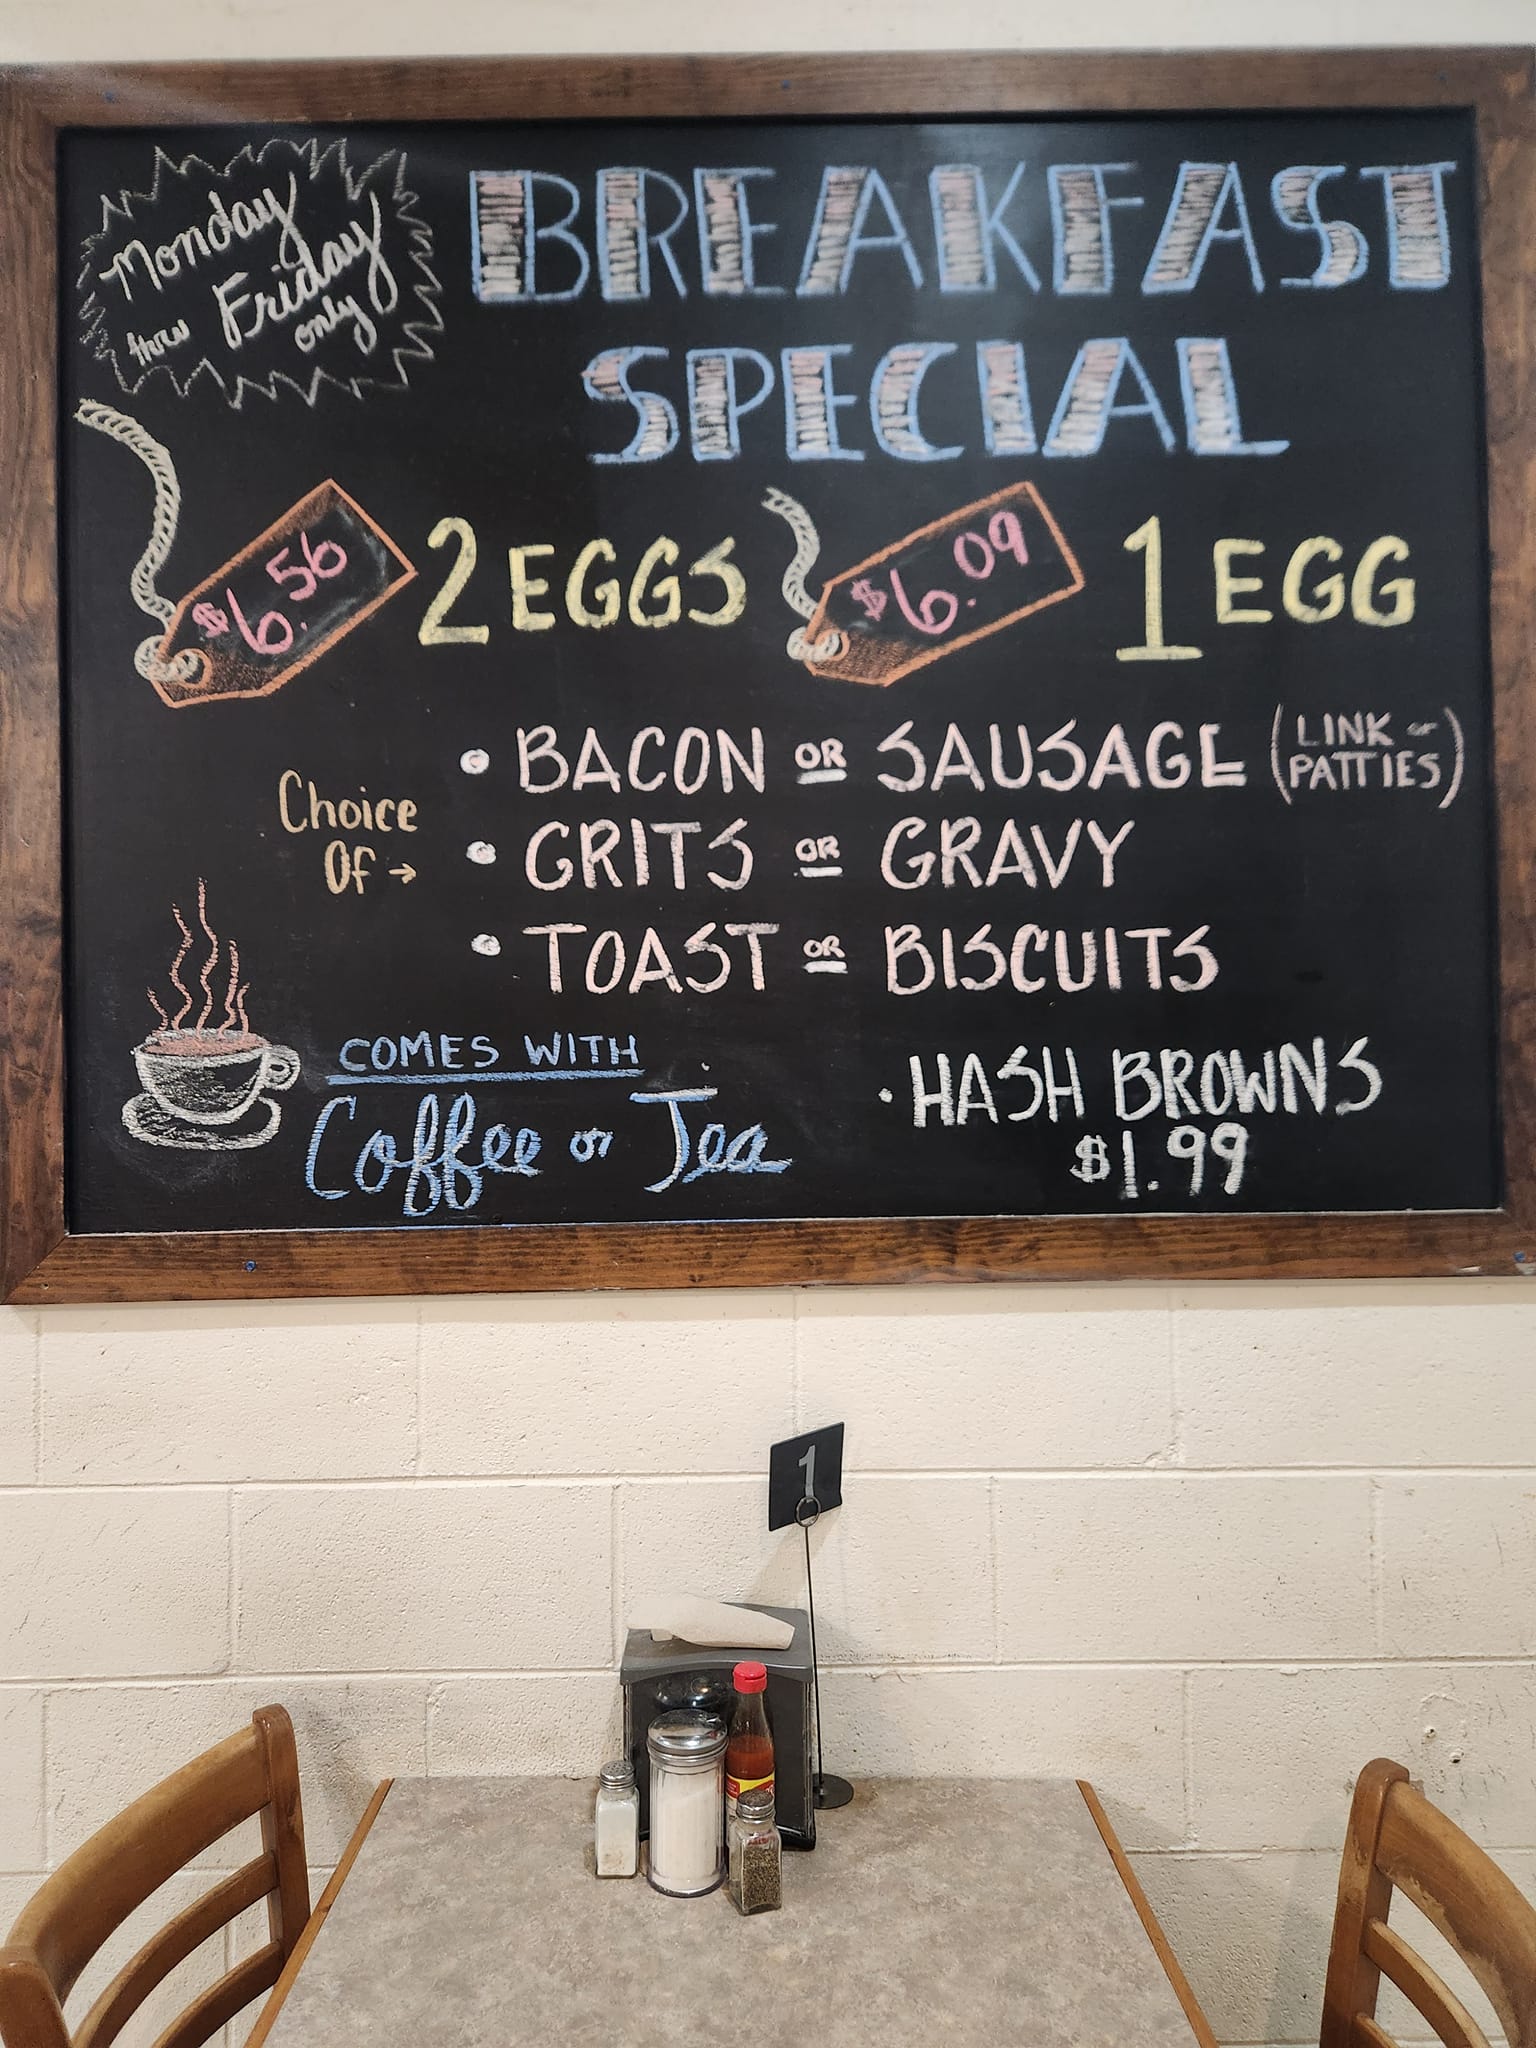 Monday
thru Friday
only
BREAKFAST
SPECIAL
$6.56 2 EGGS $6.09 1 EGG
Choice
Of →
• BACON OR SAUSAGE (LINK or PATTIES)
• GRITS OR GRAVY
• TOAST OR BISCUITS
COMES WITH
Coffee or Tea
• HASH BROWNS
$1.99
1